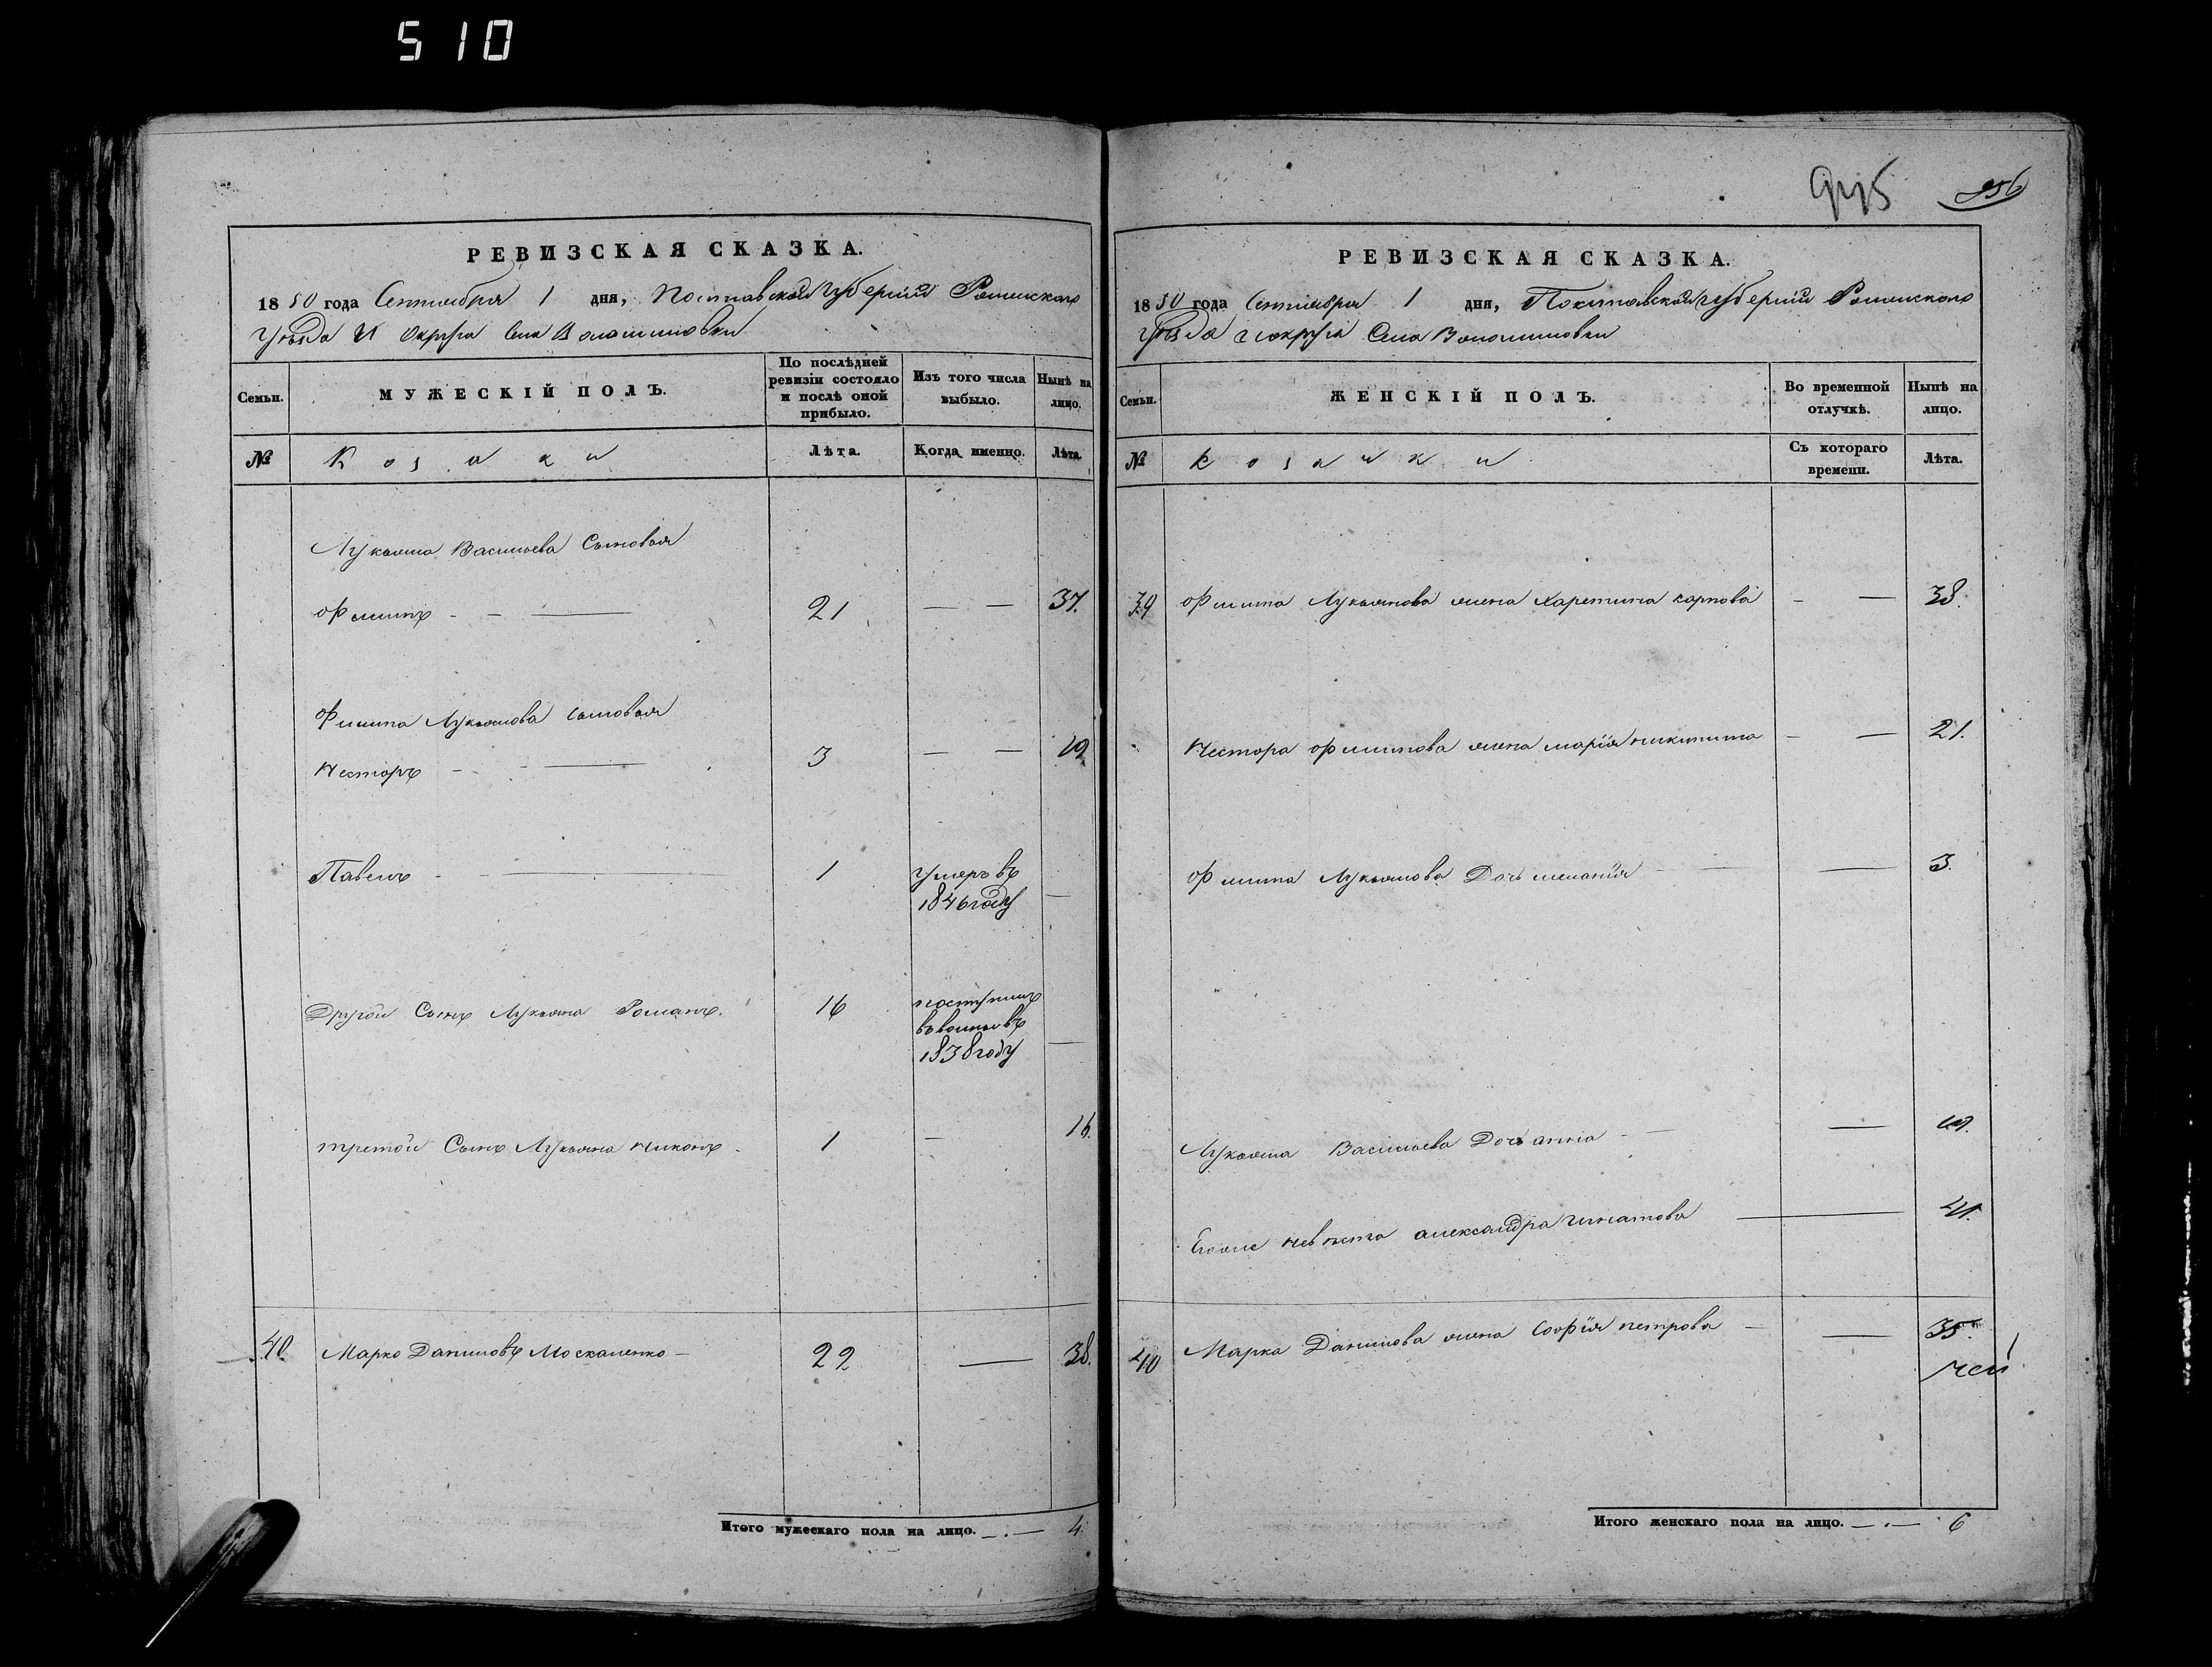 510
956
РЕВИЗСКАЯ СКАЗКА.
1850 года Сентября 1 дня, Полтавской губернии Роменскаго
Уезда И Округа Села Волошиновки
Семьи.
МУЖЕСКІЙ ПОЛЪ.
По послѣдней ревизіи состояло и послѣ оной прибыло.
Изъ того числа выбыло.
Нынѣ на лицо.
№
Козаки
Лѣта.
Когда именно.
Лѣта.
Лукьяна Васильева Сыновья
Филипъ - - — 21 — — 37.
Филипа Лукьянова сыновья
Несторъ - - — 3 — — 19
Павелъ - — 1 умеръ въ
1846 году —
Другой Сынъ Лукьяна Романъ. 16 поступилъ
въ
1838 году —
третій Сынъ Лукьяна Никонъ - 1 — 16.
40. Марко Даниловъ Москаленко — 22 — 38.
Итого мужескаго пола на лицо. — 4.
РЕВИЗСКАЯ СКАЗКА.
1850 года Сентября 1 дня, Полтавской губернии Роменскаго
Уезда округа Села Волошиновки
Семьи.
ЖЕНСКІЙ ПОЛЪ.
Во временной отлучкѣ.
Нынѣ на лицо.
№
Козачки
Съ котораго времени.
Лѣта.
39 Филипа Лукьянова жена Харетина карпова - — 38.
Нестора Филипова жена марія никитина - — 21.
Филипа Лукьянова Дочь меланія - — 3.
Лукьяна Васильева Дочь анна - — 19.
Егоже невѣста александра игнатова — 41.
40 Марка Данилова жена Софія петрова — 35.
Итого женскаго пола на лицо. — 6